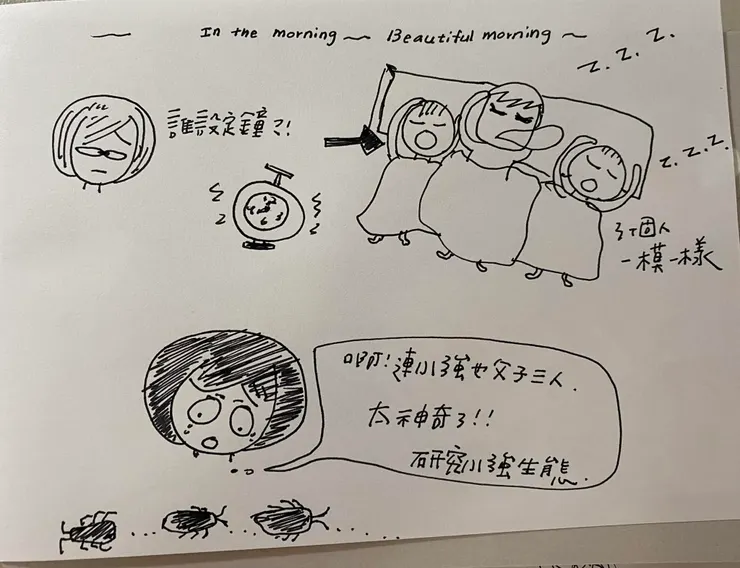 In the morning ~ Beautiful morning ~
z. z. z.
誰設定鐘了!
z. z. z.
3個人
一模一樣
啊!連小強也父子三人.
太神奇了!!
研究小強生態.